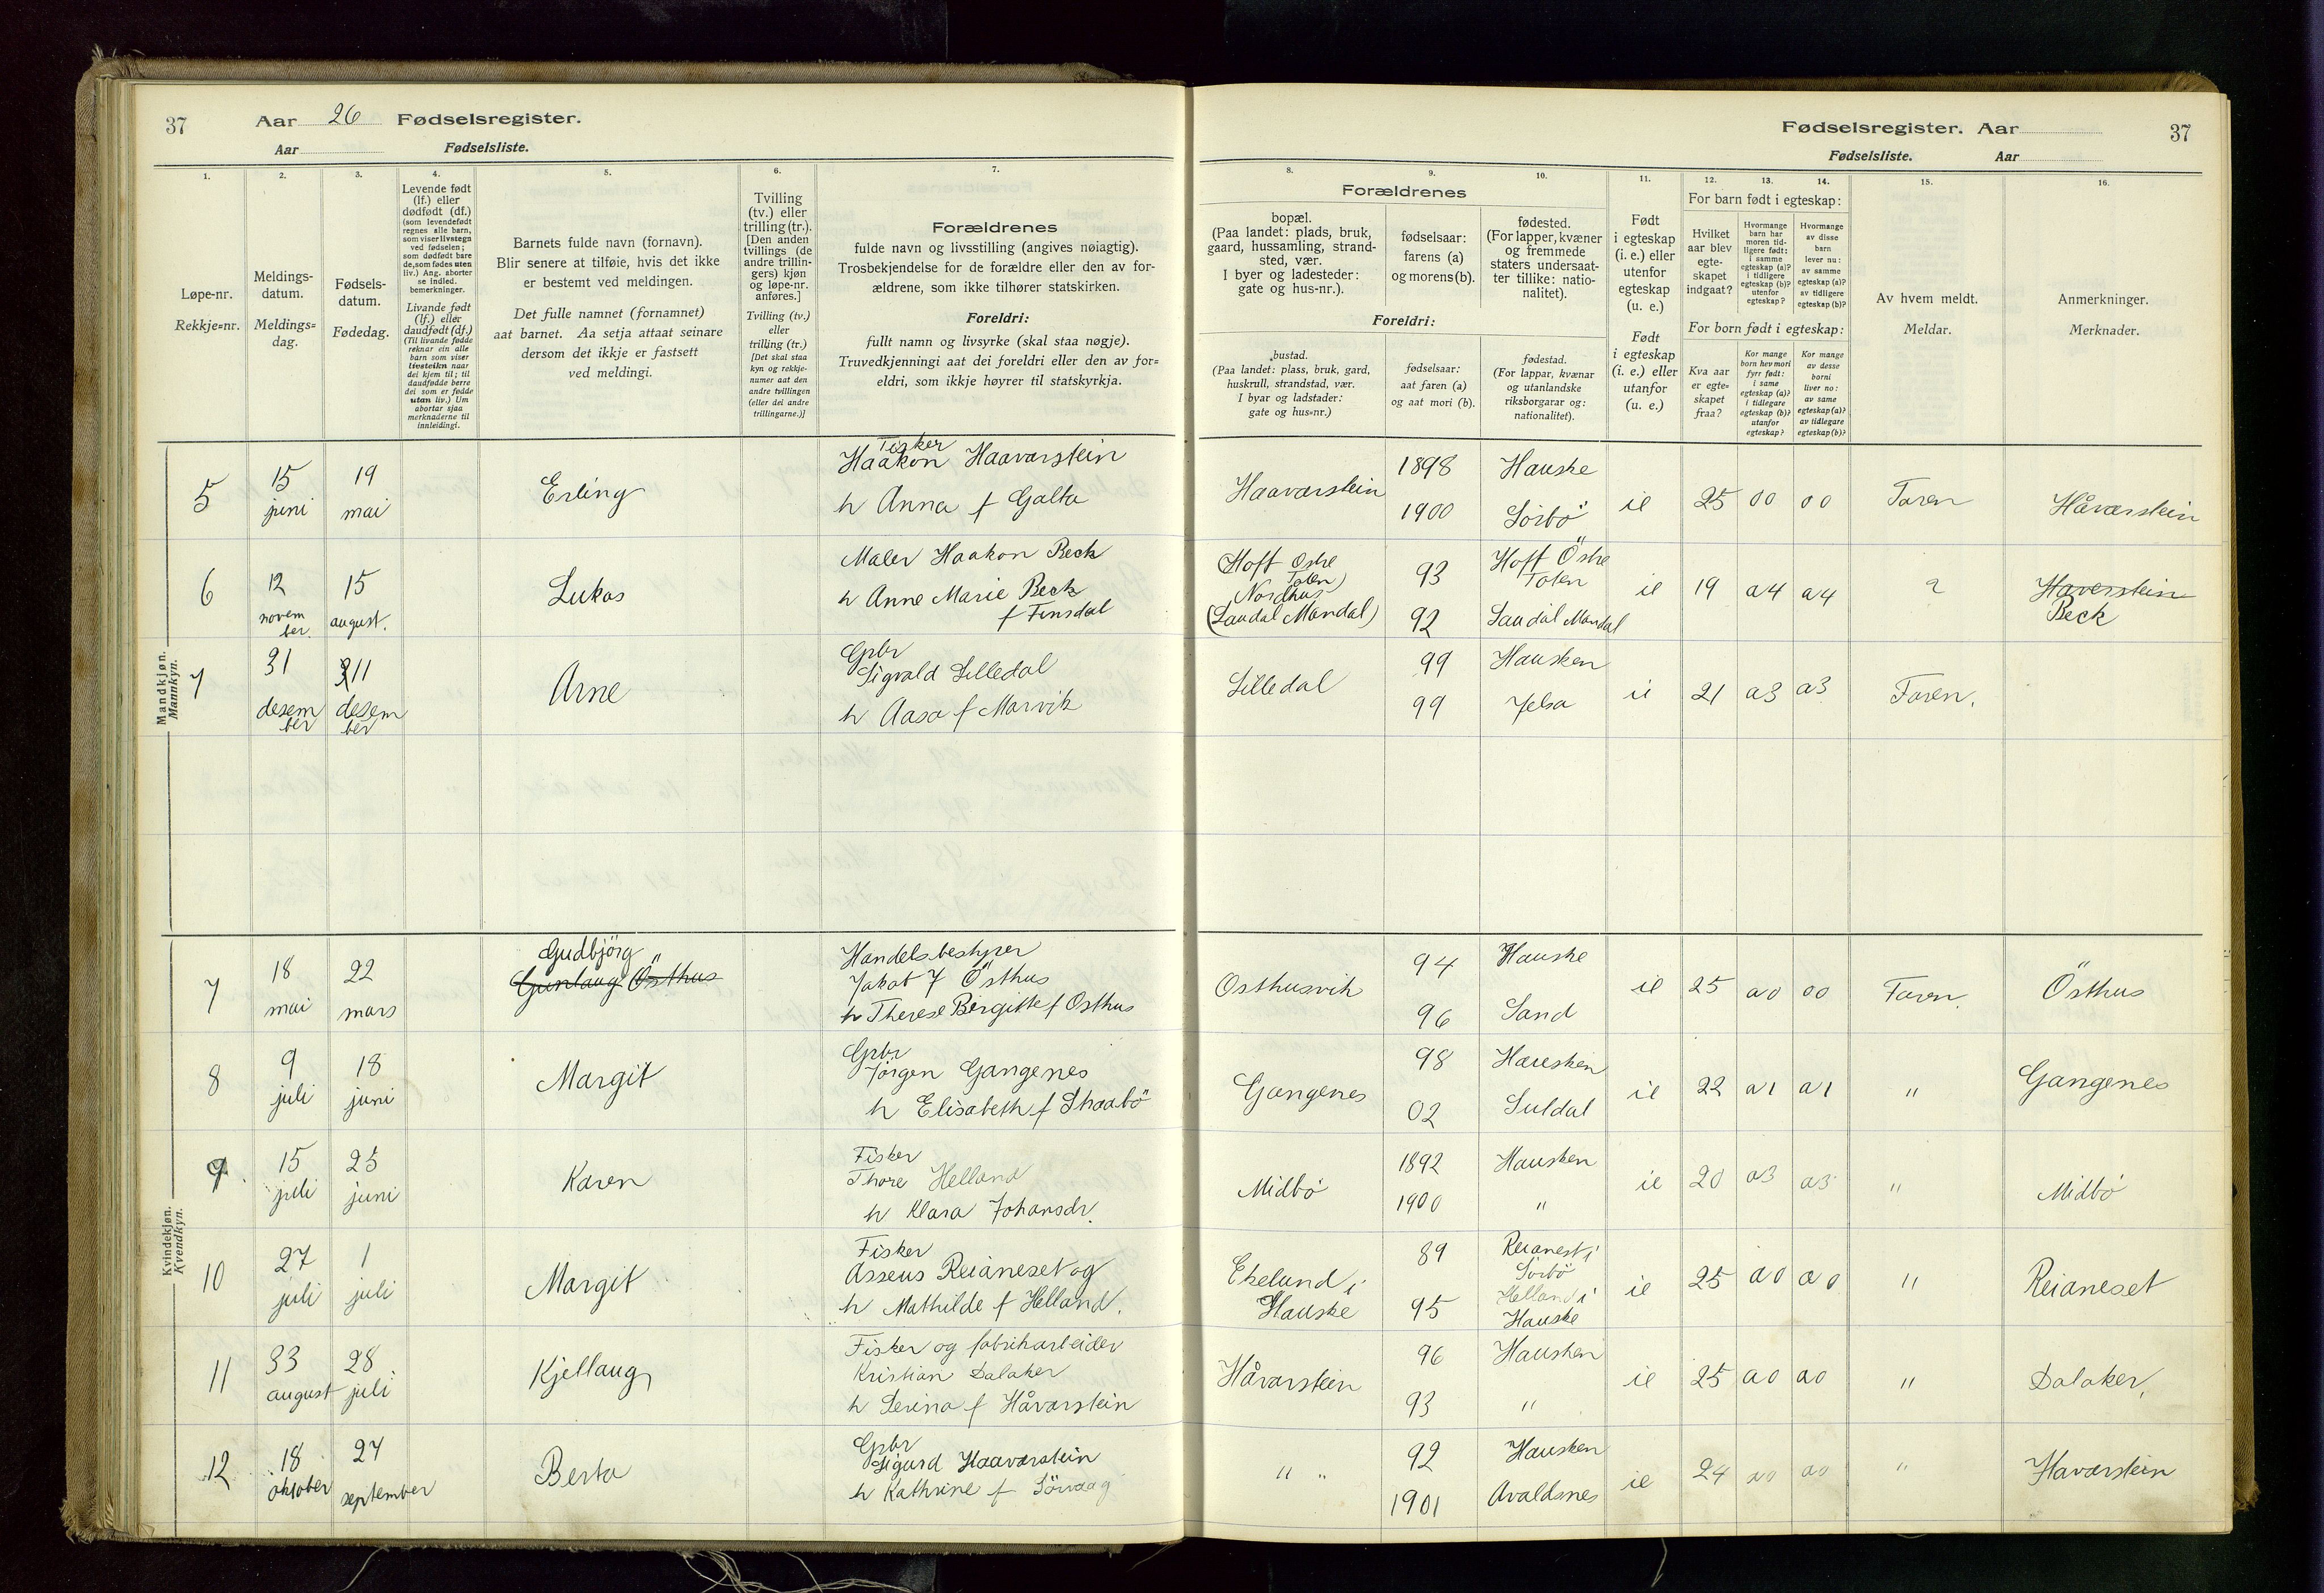 37 Aar 26 Fødselsregister.
Aar Fødselsliste.
Fødselsregister. Aar 37
Fødselsliste. Aar
1.
Løpe-nr.
Rekkje=nr.
2.
Meldings-
datum.
Meldings=
dag.
3.
Fødsels-
datum.
Fødedag.
4.
Levende født
(lf.) eller
dødfødt (df.)
(som levendefødt
regnes alle barn,
som viser livstegn
ved fødselen;
som dødfødt bare
de, som fødes uten
liv.) Ang. aborter
se indled.
bemerkninger.
Livande født
(lf.) eller
daudfødt (df.)
(Til livande fødde
reknar ein alle
barn som viser
livsteikn naar
dei kjem til; til
daudfødde berre
dei som er fødde
utan liv.) Um
abortar sjaa
merknaderne til
innleidingi.
5.
Barnets fulde navn (fornavn).
Blir senere at tilføie, hvis det ikke
er bestemt ved meldingen.
Det fulle namnet (fornamnet)
aat barnet. Aa setja attaat seinare
dersom det ikkje er fastsett
ved meldingi.
6.
Tvilling
(tv.) eller
trilling (tr.).
[Den anden
tvillings (de
andre trillin-
gers) kjøn
og løpe-nr.
anføres.]
Tvilling (tv.)
eller
trilling (tr.)
[Det skal staa
kyn og rekkje-
numer aat den
andre tvillingen
(eller dei andre
trillingarne.)]
7.
Forældrenes
fulde navn og livsstilling (angives nøiagtig).
Trosbekjendelse for de forældre eller den av for-
ældrene, som ikke tilhører statskirken.
Foreldri:
fullt namn og livsyrke (skal staa nøgje).
Truvedkjenningi aat dei foreldri eller den av for=
eldri, som ikkje høyrer til statskyrkja.
Forældrenes
8.
bopæl.
(Paa landet: plads, bruk,
gaard, hussamling, strand-
sted, vær.
I byer og ladesteder:
gate og hus-nr.).
9.
fødselsaar:
farens (a)
og morens (b).
10.
fødested.
(For lapper, kvæner
og fremmede
staters undersaat-
ter tillike: natio-
nalitet).
Foreldri:
bustad.
(Paa landet: plass, bruk, gard,
huskrull, strandstad, vær.
I byar og ladstader:
gate og hus=nr.)
fødselsaar:
aat faren (a)
og aat mori (b).
fødestad.
(For lappar, kvænar
og utanlandske
riksborgarar og:
nationalitet).
11.
Født
i egteskap
(i. e.) eller
utenfor
egteskap
(u. e.)
Født
i egteskap
(i. e.) eller
utanfor
(u. e.)
12. 13. 14.
For barn født i egteskap:
Hvilket
aar blev
egte-
skapet
indgaat?
Hvormange
barn har
moren tid-
ligere født:
i samme
egteskap (a)?
i tidligere
egteskap (b)?
utenfor
egteskap?
Hvormange
av disse
barn
lever nu:
av samme
egteskap (a)?
av tidligere
egteskap (b)?
For born født i egteskap:
Kva aar
er egte=
skapet
fraa?
Kor mange
born hev mori
fyrr født:
i same
egteskap (a)?
i tidlegare
egteskap (b)?
utanfor
egteskap?
Kor mange
av desse
borni
liver no:
av same
egteskap (a)?
av tidlegare
egteskap (b)?
15.
Av hvem meldt.
Meldar.
16.
Anmerkninger.
Merknader.
Mandkjøn.
Mannkyn.
5 15 juni 19 mai Erling
Fisker
Haakon Haavarstein
h Anna f Galta
Haavarstein 1898 Hauske
1900 Sörbö
ie 25 00 00 Faren Håvarstein
6 12 novem ber. 15 august. Lukas
Maler Haakon Beck
h Anne Marie Beck
f Finsdal
Hoff Ostre
Toten)
Nordhus
(Laudal Mandal)
93 Hoff Östre
Toten
92 Laudal Mandal
ie 19 a4 a4 Haverstein
Beck
7 31 desem ber 11 desem ber Arne
Gpbr
Sigvald Lilledal
h Aasa f Marvik
Lilledal 99 Hausken
99 Jelsa
ie 21 a3 a3 Faren.
Kvindekjøn.
Kvendkyn.
7 18 mai 22 mars Gudbjörg
Gunlaug Östhus
Handelsbestyrer
Jakob J Östhus
h Therese Birgitte f Osthus
Osthusvik 94 Hauske
96 Sand
ie 25 a0 00 Faren. Östhus
8 9 juli 18 juni Margit
Gpbr
Jörgen Gangenes
h Elisabeth f Skaabö
Gangenes 98 Hausken
02 Suldal
ie 22 a1 a1 " Gangenes
9. 15 juli 25 juni Karen
Fisker
Thore Helland
h Klara Johansdr.
Midbö 1892 Hausken
1900 "
ie 20 a3 a3 " Midbö
10 27 juli 1 juli Margit
Fisker
Asseus Reianeset og
h Mathilde f Helland.
Ekelund i
Hauske
89 Reianest i
Sörbö
95 Helland i
Hauske
ie 25 a0 a0 " Reianeset
11 33 august 28 juli Kjellaug
Fisker og fabrikarbeider
Kristian Dalaker
h Serina f Håvarstein
Håvarstein 96 Hausken
93 "
ie 25 a0 a0 " Dalaker.
12 18 oktober 27 september Berta
Gpbr
Sigurd Haavarstein
h Kathrine f Sörvaag
" " 92 Hausken
1901 Avaldsnes
ie 24 a0 a0 " Havarstein